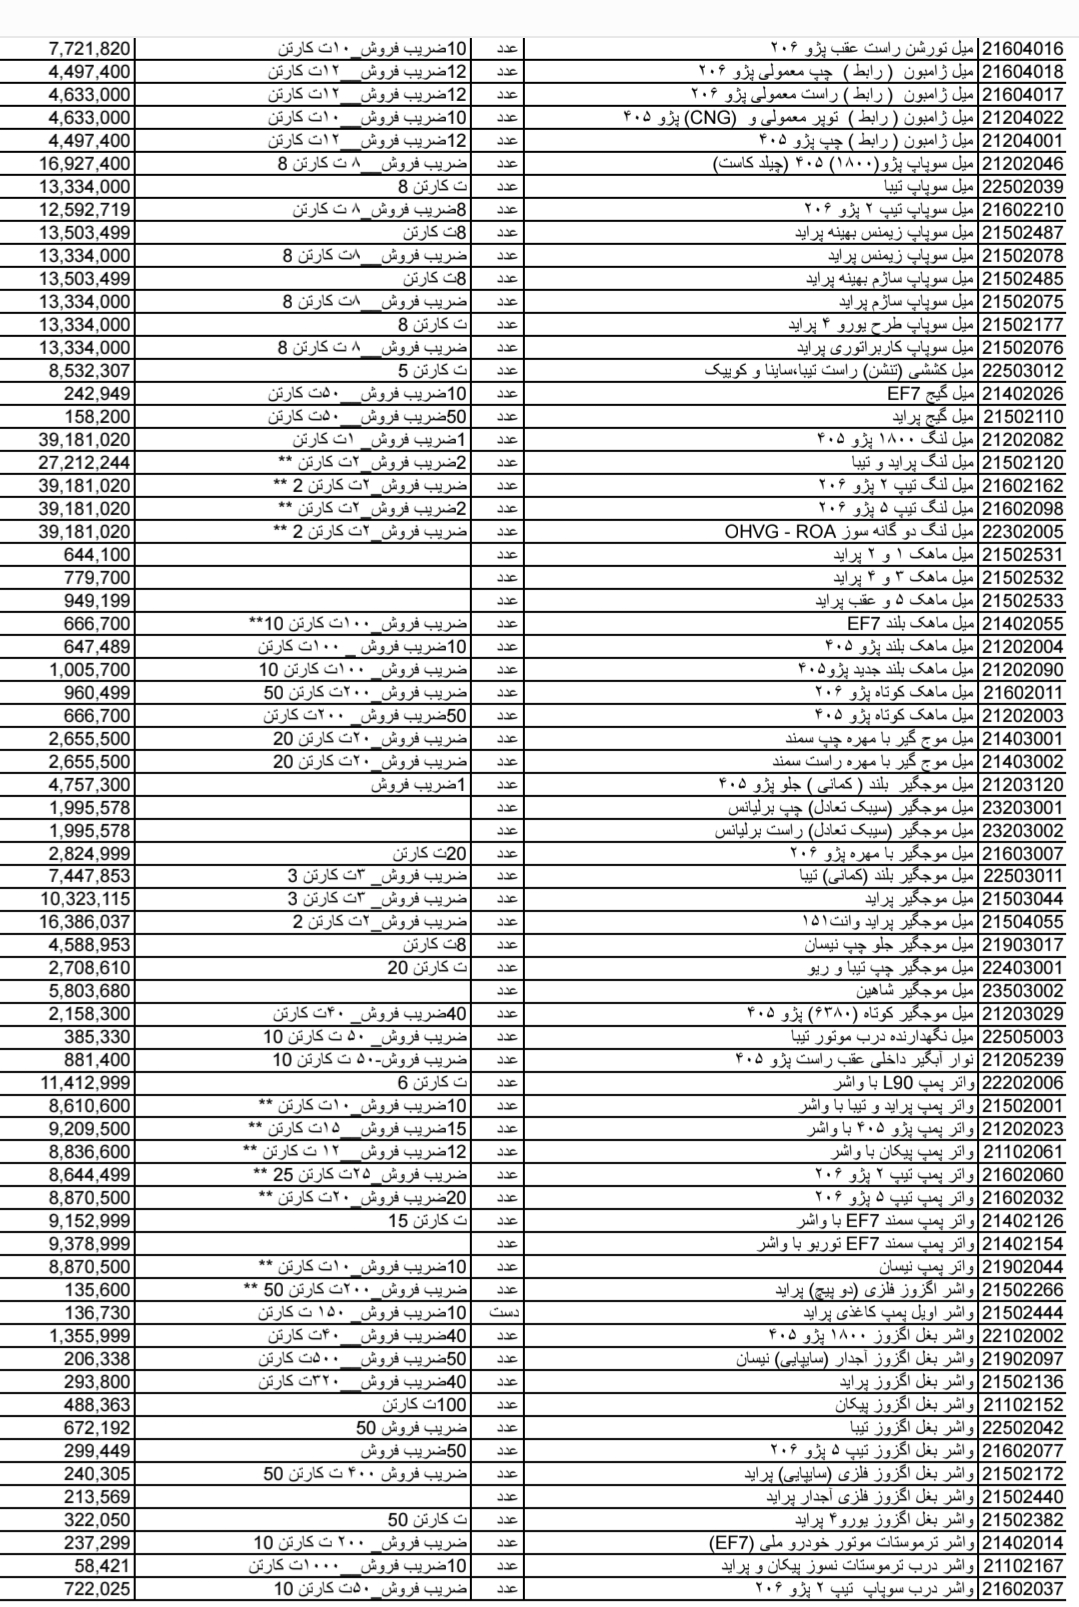 21604016 میل تورشن راست عقب پژو ۲۰۶ عدد 10ضریب فروش_۱۰ت کارتن 7,721,820
21604018 میل ژامبون ( رابط ) چپ معمولی پژو ۲۰۶ عدد 12ضریب فروش__۱۲ت کارتن 4,497,400
21604017 میل ژامبون ( رابط ) راست معمولی پژو ۲۰۶ عدد 12ضریب فروش__۱۲ت کارتن 4,633,000
21204022 میل ژامبون ( رابط ) توپر معمولی و (CNG) پژو ۴۰۵ عدد 10ضریب فروش__۱۰ت کارتن 4,633,000
21204001 میل ژامبون ( رابط ) چپ پژو ۴۰۵ عدد 12ضریب فروش__۱۲ت کارتن 4,497,400
21202046 میل سوپاپ پژو(۱۸۰۰) ۴۰۵ (چیلد کاست) عدد ضریب فروش__۸ ت کارتن 8 16,927,400
22502039 میل سوپاپ تیبا عدد ت کارتن 8 13,334,000
21602210 میل سوپاپ تیپ ۲ پژو ۲۰۶ عدد 8ضریب فروش_۸ ت کارتن 12,592,719
21502487 میل سوپاپ زیمنس بهینه پراید عدد 8ت کارتن 13,503,499
21502078 میل سوپاپ زیمنس پراید عدد ضریب فروش__۸ت کارتن 8 13,334,000
21502485 میل سوپاپ ساژم بهینه پراید عدد 8ت کارتن 13,503,499
21502075 میل سوپاپ ساژم پراید عدد ضریب فروش__۸ت کارتن 8 13,334,000
21502177 میل سوپاپ طرح یورو ۴ پراید عدد ت کارتن 8 13,334,000
21502076 میل سوپاپ کاربراتوری پراید عدد ضریب فروش__۸ ت کارتن 8 13,334,000
22503012 میل کششی (تنشن) راست تیبا،ساینا و کوییک عدد ت کارتن 5 8,532,307
21402026 میل گیج EF7 عدد 10ضریب فروش__۵۰ت کارتن 242,949
21502110 میل گیج پراید عدد 50ضریب فروش__۵۰ت کارتن 158,200
21202082 میل لنگ ۱۸۰۰ پژو ۴۰۵ عدد 1ضریب فروش_ ۱ت کارتن 39,181,020
21502120 میل لنگ پراید و تیبا عدد 2ضریب فروش_۲ت کارتن ** 27,212,244
21602162 میل لنگ تیپ ۲ پژو ۲۰۶ عدد ضریب فروش_۲ت کارتن 2 ** 39,181,020
21602098 میل لنگ تیپ ۵ پژو ۲۰۶ عدد 2ضریب فروش_۲ت کارتن ** 39,181,020
22302005 میل لنگ دو گانه سوز OHVG - ROA عدد ضریب فروش_۲ت کارتن 2 ** 39,181,020
21502531 میل ماهک ۱ و ۲ پراید عدد 644,100
21502532 میل ماهک ۳ و ۴ پراید عدد 779,700
21502533 میل ماهک ۵ و عقب پراید عدد 949,199
21402055 میل ماهک بلند EF7 عدد ضریب فروش_۱۰۰ت کارتن 10** 666,700
21202004 میل ماهک بلند پژو ۴۰۵ عدد 10ضریب فروش _ ۱۰۰ت کارتن 647,489
21202090 میل ماهک بلند جدید پژو۴۰۵ عدد ضریب فروش_۱۰۰ت کارتن 10 1,005,700
21602011 میل ماهک کوتاه پژو ۲۰۶ عدد ضریب فروش_۲۰۰ت کارتن 50 960,499
21202003 میل ماهک کوتاه پژو ۴۰۵ عدد 50ضریب فروش_ ۲۰۰ت کارتن 666,700
21403001 میل موج گیر با مهره چپ سمند عدد ضریب فروش_۲۰ت کارتن 20 2,655,500
21403002 میل موج گیر با مهره راست سمند عدد ضریب فروش_۲۰ت کارتن 20 2,655,500
21203120 میل موجگیر بلند ( کمانی ) جلو پژو ۴۰۵ عدد 1ضریب فروش 4,757,300
23203001 میل موجگیر (سیبک تعادل) چپ برلیانس عدد 1,995,578
23203002 میل موجگیر (سیبک تعادل) راست برلیانس عدد 1,995,578
21603007 میل موجگیر با مهره پژو ۲۰۶ عدد 20ت کارتن 2,824,999
22503011 میل موجگیر بلند (کمانی) تیبا عدد ضریب فروش_ ۳ت کارتن 3 7,447,853
21503044 میل موجگیر پراید عدد ضریب فروش_ ۳ت کارتن 3 10,323,115
21504055 میل موجگیر پراید وانت۱۵۱ عدد ضریب فروش_۲ت کارتن 2 16,386,037
21903017 میل موجگیر جلو چپ نیسان عدد 8ت کارتن 4,588,953
22403001 میل موجگیر چپ تیبا و ریو عدد ت کارتن 20 2,708,610
23503002 میل موجگیر شاهین عدد 5,803,680
21203029 میل موجگیر کوتاه (۶۳۸۰) پژو ۴۰۵ عدد 40ضریب فروش_ ۴۰ت کارتن 2,158,300
22505003 میل نگهدارنده درب موتور تیبا عدد ضریب فروش_ ۵۰ ت کارتن 10 385,330
21205239 نوار آبگیر داخلی عقب راست پژو ۴۰۵ عدد ضریب فروش-۵۰ ت کارتن 10 881,400
22202006 واتر پمپ L90 با واشر عدد ت کارتن 6 11,412,999
21502001 واتر پمپ پراید و تیبا با واشر عدد 10ضریب فروش_۱۰ت کارتن ** 8,610,600
21202023 واتر پمپ پژو ۴۰۵ با واشر عدد 15ضریب فروش__۱۵ت کارتن ** 9,209,500
21102061 واتر پمپ پیکان با واشر عدد 12ضریب فروش__۱۲ ت کارتن ** 8,836,600
21602060 واتر پمپ تیپ ۲ پژو ۲۰۶ عدد ضریب فروش_۲۵ت کارتن 25 ** 8,644,499
21602032 واتر پمپ تیپ ۵ پژو ۲۰۶ عدد 20ضریب فروش_۲۰ت کارتن ** 8,870,500
21402126 واتر پمپ سمند EF7 با واشر عدد ت کارتن 15 9,152,999
21402154 واتر پمپ سمند EF7 توربو با واشر عدد 9,378,999
21902044 واتر پمپ نیسان عدد 10ضریب فروش_۱۰ت کارتن ** 8,870,500
21502266 واشر اگزوز فلزی (دو پیچ) پراید عدد ضریب فروش_۲۰۰ت کارتن 50 ** 135,600
21502444 واشر اویل پمپ کاغذی پراید دست 10ضریب فروش_ ۱۵۰ ت کارتن 136,730
22102002 واشر بغل اگزوز ۱۸۰۰ پژو ۴۰۵ عدد 40ضریب فروش__۴۰ت کارتن 1,355,999
21902097 واشر بغل اگزوز آجدار (سایپایی) نیسان عدد 50ضریب فروش__۵۰۰ت کارتن 206,338
21502136 واشر بغل اگزوز پراید عدد 40ضریب فروش__۳۲۰ت کارتن 293,800
21102152 واشر بغل اگزوز پیکان عدد 100ت کارتن 488,363
22502042 واشر بغل اگزوز تیبا عدد ضریب فروش 50 672,192
21602077 واشر بغل اگزوز تیپ ۵ پژو ۲۰۶ عدد 50ضریب فروش 299,449
21502172 واشر بغل اگزوز فلزی (سایپایی) پراید عدد ضریب فروش ۴۰۰ ت کارتن 50 240,305
21502440 واشر بغل اگزوز فلزی آجدار پراید عدد 213,569
21502382 واشر بغل اگزوز یورو۴ پراید عدد ت کارتن 50 322,050
21402014 واشر ترموستات موتور خودرو ملی (EF7) عدد ضریب فروش_ ۲۰۰ ت کارتن 10 237,299
21102167 واشر درب ترموستات نسوز پیکان و پراید عدد 10ضریب فروش__۱۰۰۰ت کارتن 58,421
21602037 واشر درب سوپاپ تیپ ۲ پژو ۲۰۶ عدد ضریب فروش_۵۰ت کارتن 10 722,025